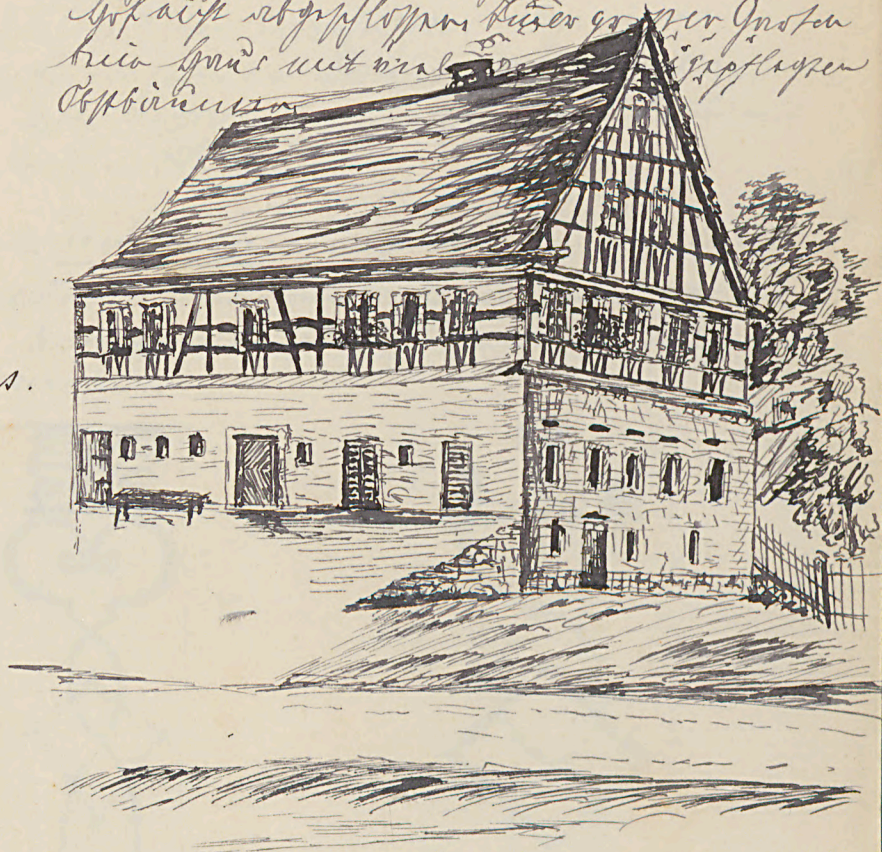 Hof nicht abgeschlossen großer Garten
beim Haus mit viel gepflegten
Obstbäumen
s.